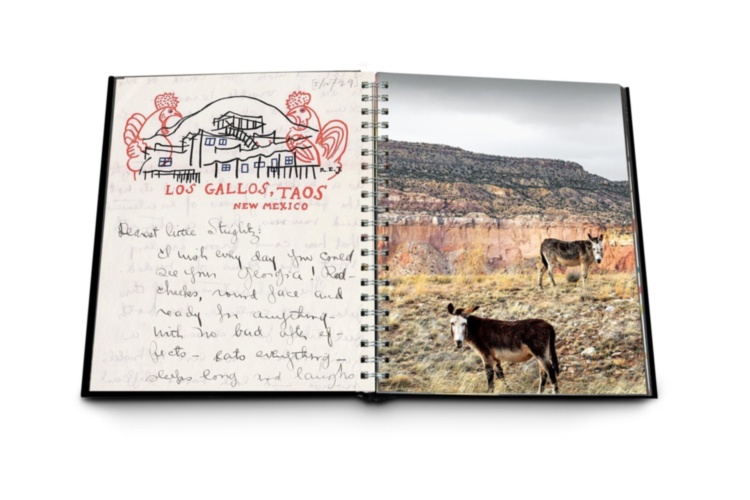 R.E.J
LOS GALLOS, TAOS
NEW MEXICO
Dearest little Stieglitz:
I wish every day you could
see your Georgia! Red-
cheeks, round face and
ready for anything-
with no bad after ef-
fects - eats everything -
sleeps long and laughs